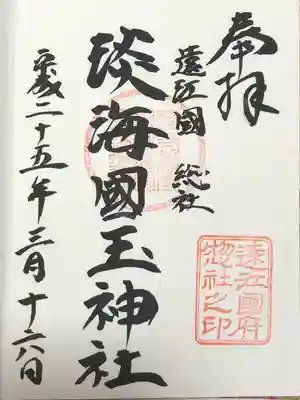 奉拝
遠江國 総社
淡海國玉神社
平成二十五年三月十六日
遠江国府
惣社之印